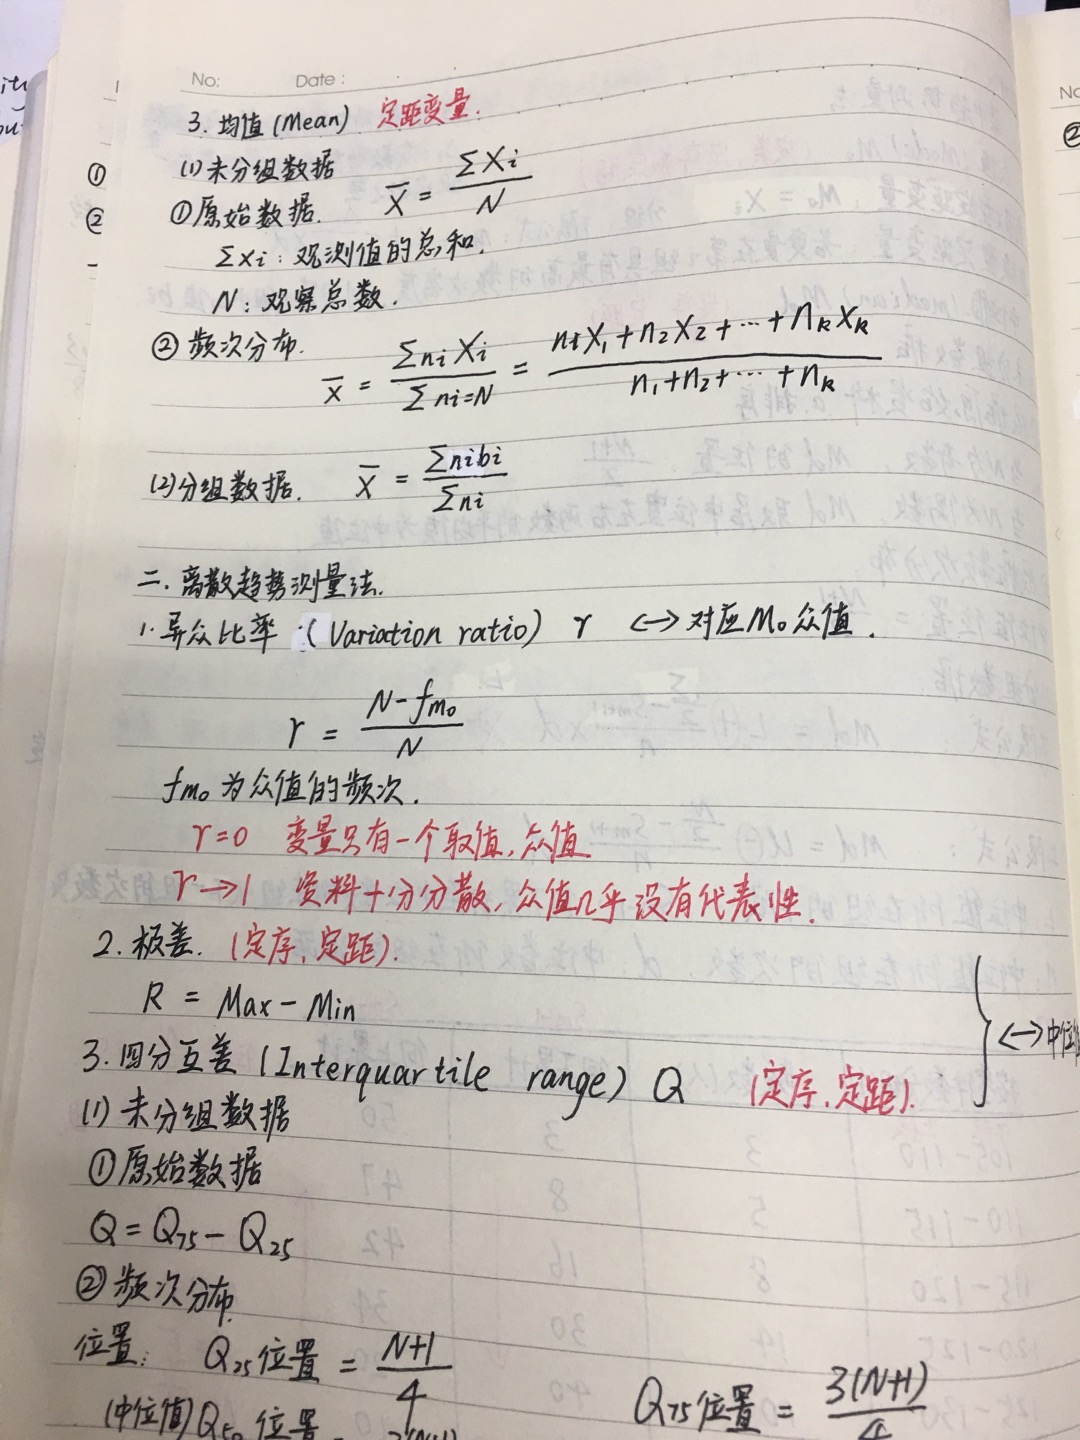 No: Date:
3. 均值 (Mean) 定距变量.
(1) 未分组数据
① 原始数据. X̄ = ΣXi / N
ΣXi : 观测值的总和.
N : 观察总数.
② 频次分布. X̄ = Σni Xi / Σni=N = n1X1+n2X2+…+nkXk / n1+n2+…+nk
(2) 分组数据. X̄ = Σnibi / Σni
二. 离散趋势测量法.
1. 异众比率 : (Variation ratio) r ⟷ 对应Mo众值.
r = N-fmo / N
fmo为众值的频次.
r=0 变量只有一个取值,众值
r→1 资料十分分散,众值几乎没有代表性.
2. 极差. (定序、定距).
R = Max - Min
} ⟷ 中位
3. 四分互差 (Interquartile range) Q (定序、定距).
(1) 未分组数据
① 原始数据
Q = Q75 - Q25
② 频次分布.
位置: Q25位置 = N+1 / 4 Q75位置 = 3(N+1) / 4
(中位值) Q50 位置